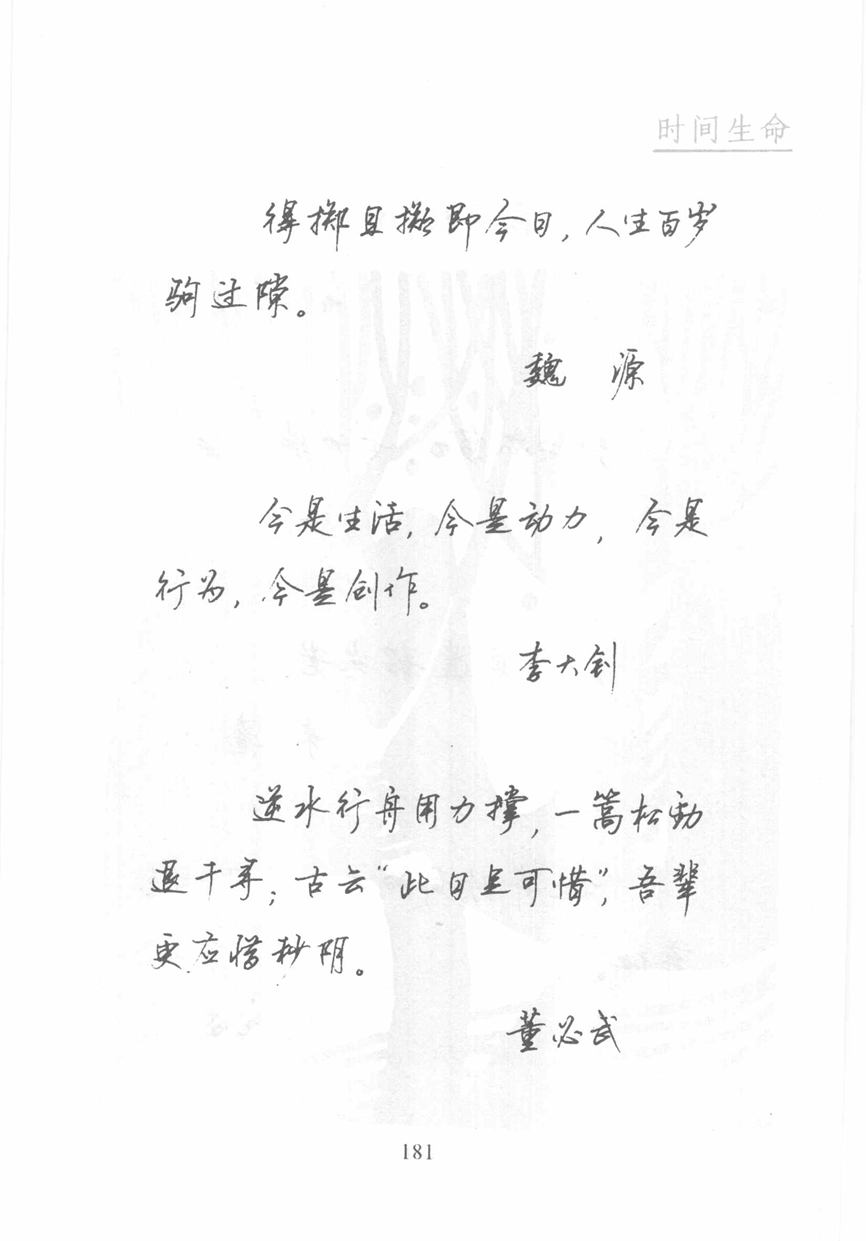 时间生命
得掷且掷即今日，人生百岁
驹过隙。
魏 源
今是生活，今是动力，今是
行为，今是创作。
李大钊
逆水行舟用力撑，一篙松劲
退千寻；古云“此日足可惜”，吾辈
更应惜秒阴。
董必武
181